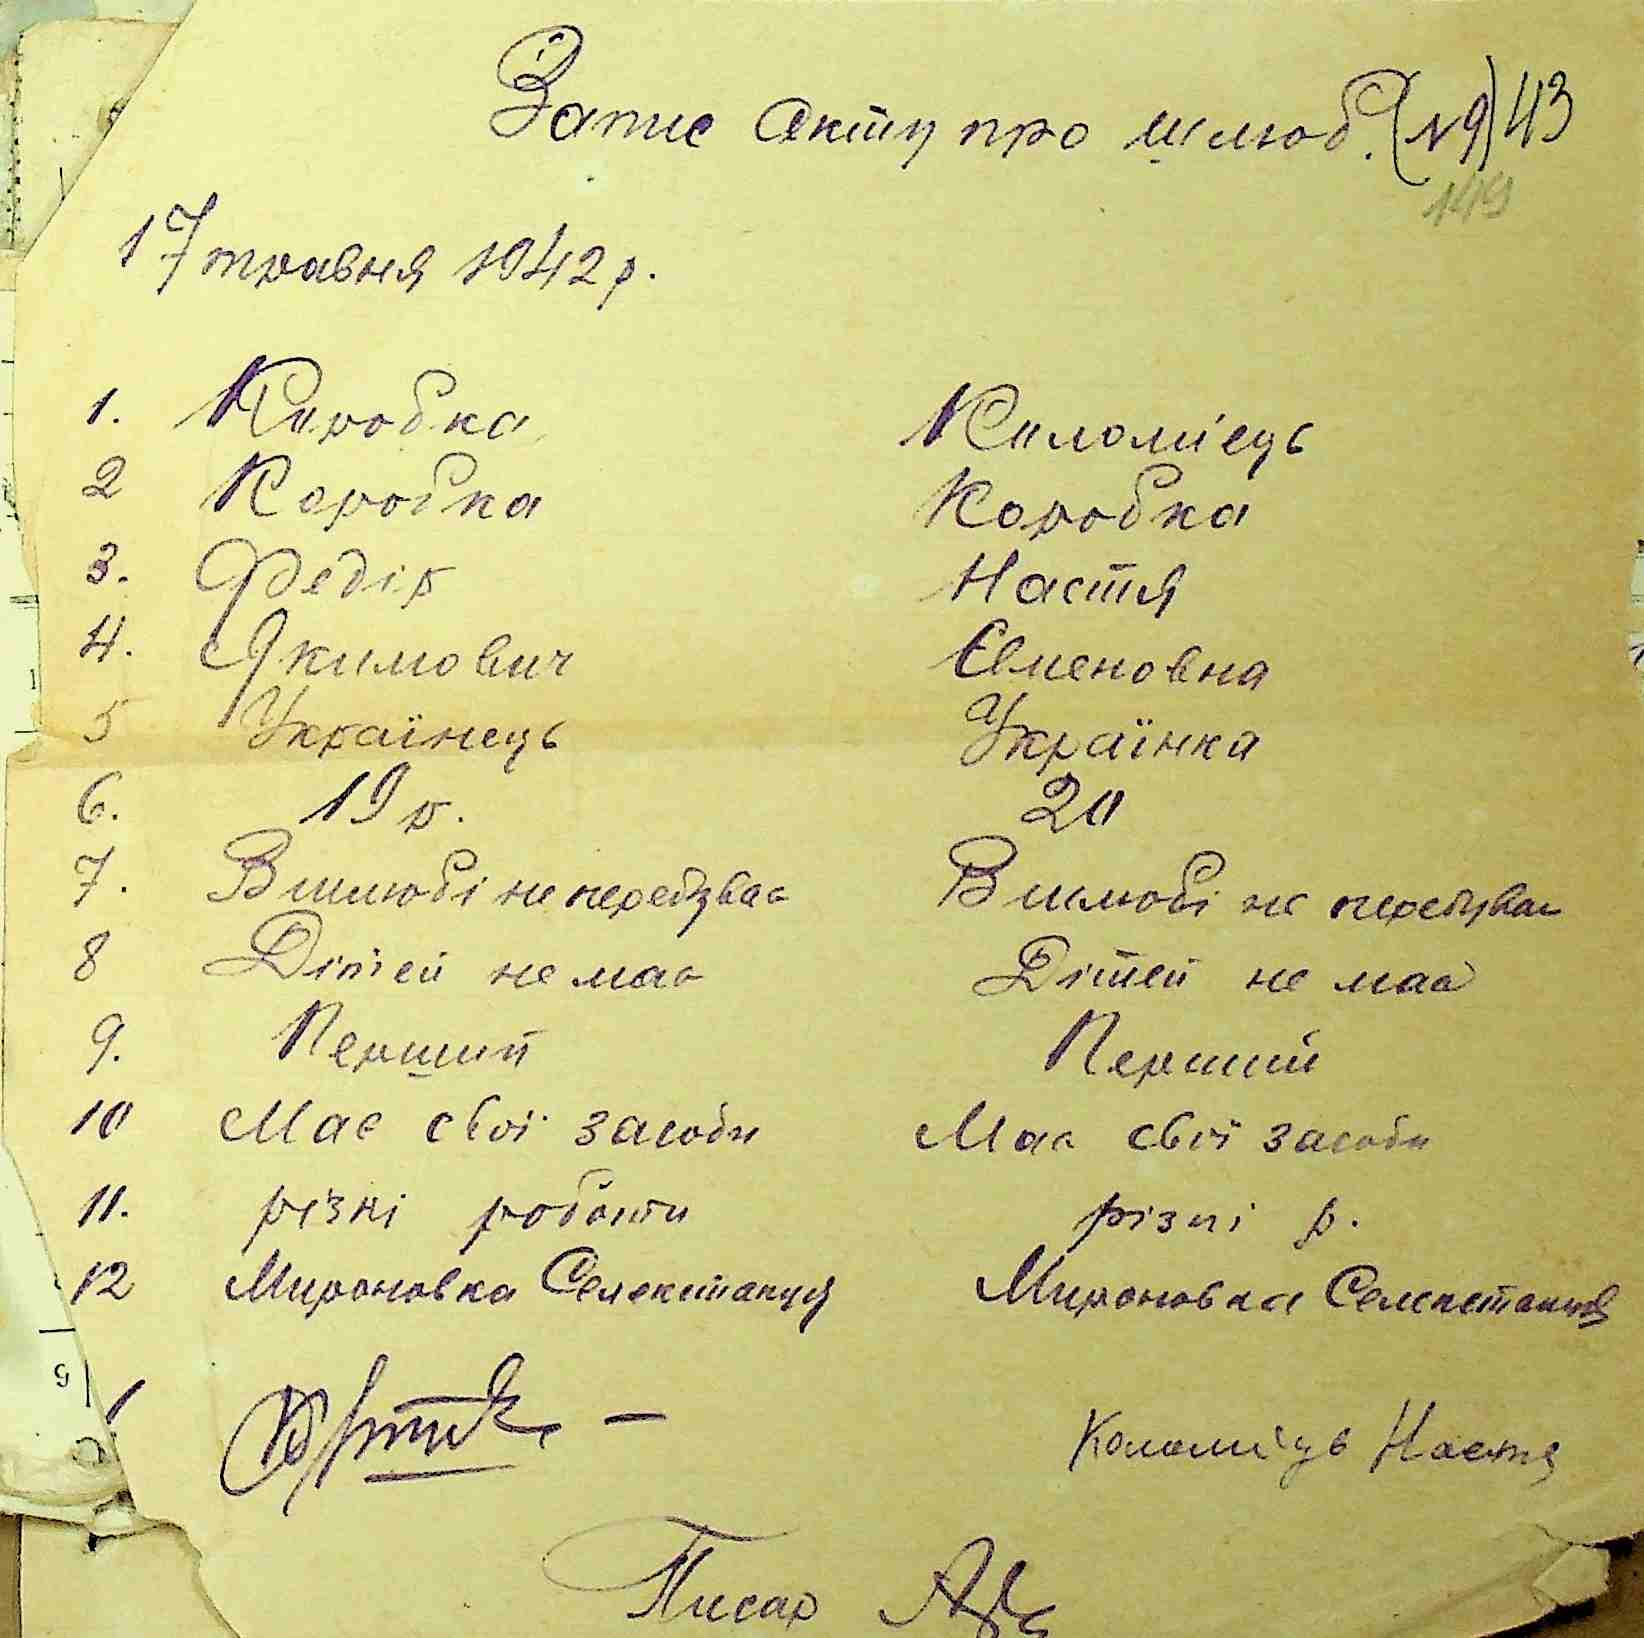 Запис Акту про шлюб. (№9) 43
149
17 травня 1942 р.
1. Коробка Коломієць
2 Коробка Коробка
3. Федір Настя
4. Якимович Євменовна
5 Українець Українка
6. 19 р. 20
7. В шлюбі не перебував В шлюбі не перебувала
8 Дітей не має Дітей не має
9. Перший Перший
10 Має свої засоби Має свої засоби
11. різні роботи різні р.
12 Мироновка Селекстанция Мироновка Селекстанция
Коломієць Настя
Писар